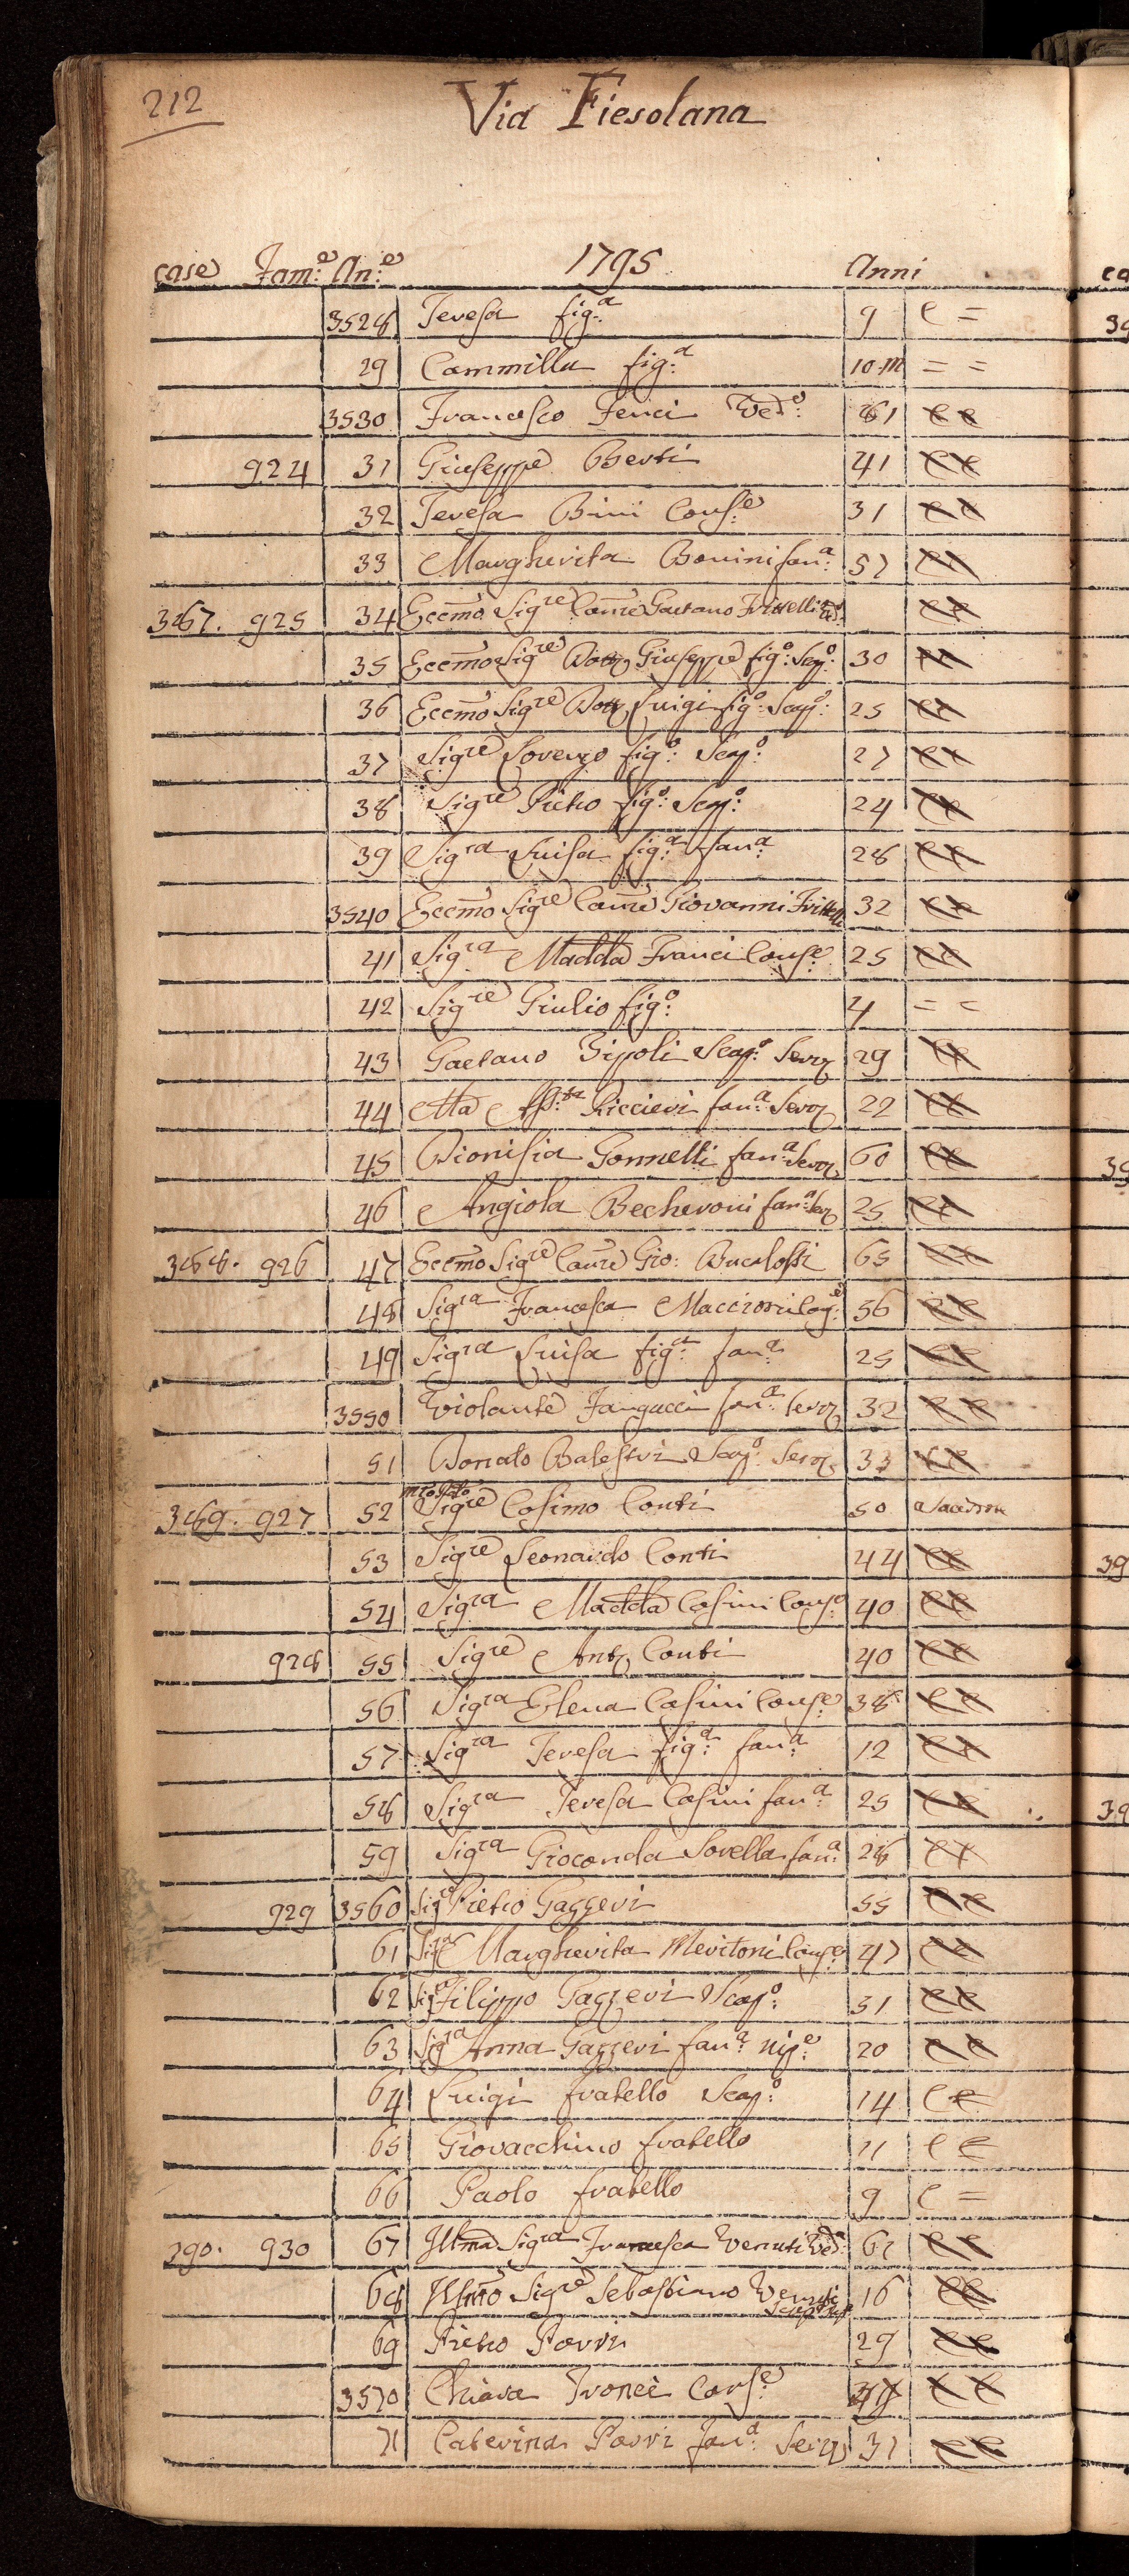 212
Via Fiesolana
case Fam:e An:e 1795 Anni
3528 Teresa fig:a 9 C =
29 Cammilla fig:a 10 m = =
3530 Francesco Fenci Ved:o 61 C C
924 31 Giuseppe Berti 41 C C
32 Teresa Bini Cons:e 31 C C
33 Margherita Bonini fan:a 57 C C
387. 925 34 Eccmo Sigre Caure Gaetano Frittelli Ved:o C C
35 Eccmo Sigre Dott Giuseppe fig:o Scap:o 30 C C
36 Eccmo Sigre Dott Luigi fig:o Scap:o 25 C C
37 Sigre Lorenzo fig:o Scap:o 27 C C
38 Sigre Pietro fig:o Scap:o 24 C C
39 Sigra Luisa fig:a fan:a 28 C C
3540 Eccmo Sigre Caure Giovanni Frittelli 32 C C
41 Sigra Madda Franci Cons:e 25 C C
42 Sigre Giulio fig:o 4 = =
43 Gaetano Zipoli Scap:o Serv 29 C C
44 Ma Assta Riccieri fan:a Serv 22 C C
45 Dionisia Gonnelli fan:a Serv 60 C C
46 Angiola Becheroni fan:a Ser 25 C C
388. 926 47 Eccmo Sigre Caure Gio: Bucalossi 65 C C
48 Sigra Francesca Maccioni Con:e 56 C C
49 Sigra Luisa fig:a fan:a 25 C C
3550 Violante Fangacci fan:a Serv 32 C C
51 Donato Balestri Scap:o Serv 33 C C
389. 927 52 Sigre Cosimo Conti 50
53 Sigre Leonardo Conti 44 C C
54 Sigra Madda Casini Cons:e 40 C C
928 55 Sigre Anto Conti 40 C C
56 Sigra Elena Casini Cons:e 38 C C
57 Sigra Teresa fig:a fan:a 12 C C
58 Sigra Teresa Casini fan:a 25 C C
59 Sigra Gioconda Sorella fan:a 28 C C
929 3560 Sigre Pietro Gazzeri 55 C C
61 Sigra Margherita Meritoni Cons:e 47 C C
62 Sigre Filippo Gazzeri Scap:o 51 C C
63 Sigra Anna Gazzeri fan:a nip:e 20 C C
64 Luigi fratello Scap:o 14 C C
65 Giovacchino fratello 11 C C
66 Paolo fratello 9 C =
390. 930 67 Illma Sigra Francesca Venuti Ved:a 62 C C
68 Illmo Sigre Sebastiano Venuti 16 C C
69 Pietro Parri 29 C C
3570 Chiara Fronci Cons:e C C
71 Caterina Parri fan:a Serv 31 C C